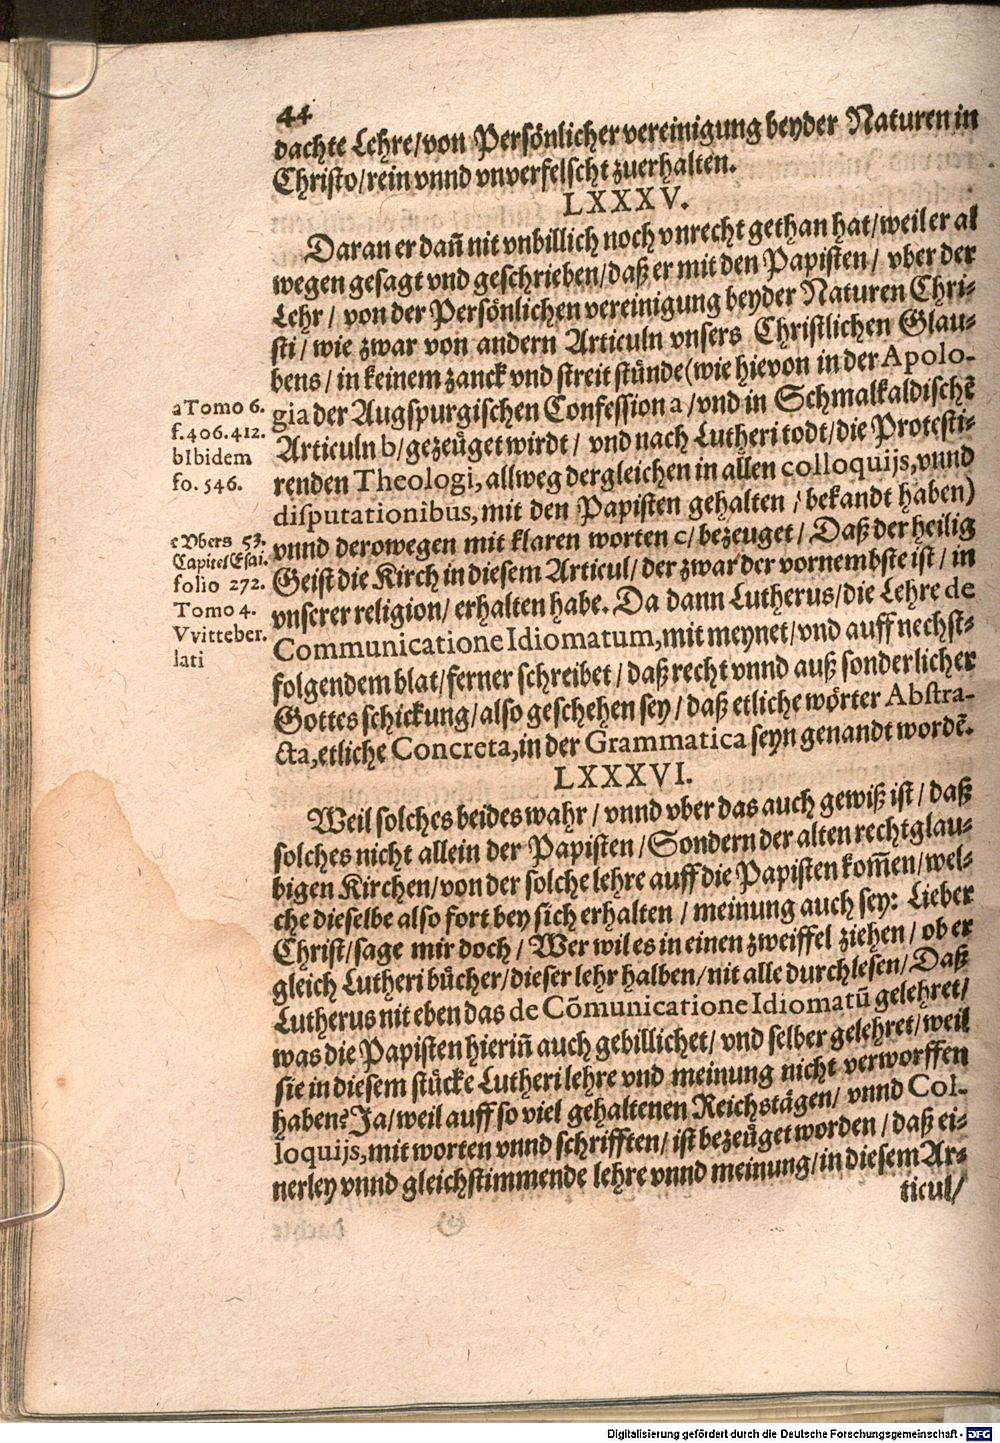 44
dachte Lehre/von Persönlicher vereinigung beyder Naturen in
Christo/rein vnnd vnverfelscht zuerhalten.
LXXXV.
Daran er dañ nit vnbillich noch vnrecht gethan hat/weil er al
wegen gesagt vnd geschrieben/daß er mit den Papisten/ vber der
Lehr/ von der Persönlichen vereinigung beyder Naturen Chri-
sti/ wie zwar von andern Articuln vnsers Christlichen Glau-
bens/ in keinem zanck vnd streit stünde(wie hievon in der Apolo-
gia der Augspurgischen Confession a/vnd in Schmalkaldischẽ
Articuln b/gezeüget wirdt/ vnd nach Lutheri todt/die Protesti-
renden Theologi, allweg dergleichen in allen colloquijs,vnnd
disputationibus, mit den Papisten gehalten / bekandt haben)
vnnd derowegen mit klaren worten c/bezeuget/ Daß der heilig
Geist die Kirch in diesem Articul/ der zwar der vornembste ist/ in
vnserer religion/ erhalten habe. Da dann Lutherus/die Lehre de
Communicatione Idiomatum, mit meynet/vnd auff nechst-
folgendem blat/ferner schreibet/ daß recht vnnd auß sonderlicher
Gottes schickung/also geschehen sey/ daß etliche wörter Abstra-
cta, etliche Concreta, in der Grammatica seyn genandt wordẽ.
aTomo 6.
f.406.412.
bIbidem
fo. 546.
cVbers 53.
Capitel Esai.
folio 272.
Tomo 4.
Vvitteber.
lati
LXXXVI.
Weil solches beides wahr/ vnnd vber das auch gewiß ist/ daß
solches nicht allein der Papisten/Sondern der alten rechtglau-
bigen Kirchen/von der solche lehre auff die Papisten kom̃en/wel-
che dieselbe also fort bey sich erhalten / meinung auch sey: Lieber
Christ/sage mir doch/ Wer wil es in einen zweiffel ziehen/ ob er
gleich Lutheri bücher/dieser lehr halben/nit alle durchlesen/ Daß
Lutherus nit eben das de Cõmunicatione Idiomatũ gelehret/
was die Papisten hieriñ auch gebillichet/ vnd selber gelehret/weil
sie in diesem stücke Lutheri lehre vnd meinung nicht verworffen
haben? Ja/weil auff so viel gehaltenen Reichstägen/ vnnd Col-
loquijs, mit worten vnnd schrifften/ ist bezeüget worden/ daß ei-
nerley vnnd gleichstimmende lehre vnnd meinung/in diesem Ar-
ticul/
Digitalisierung gefördert durch die Deutsche Forschungsgemeinschaft - DFG